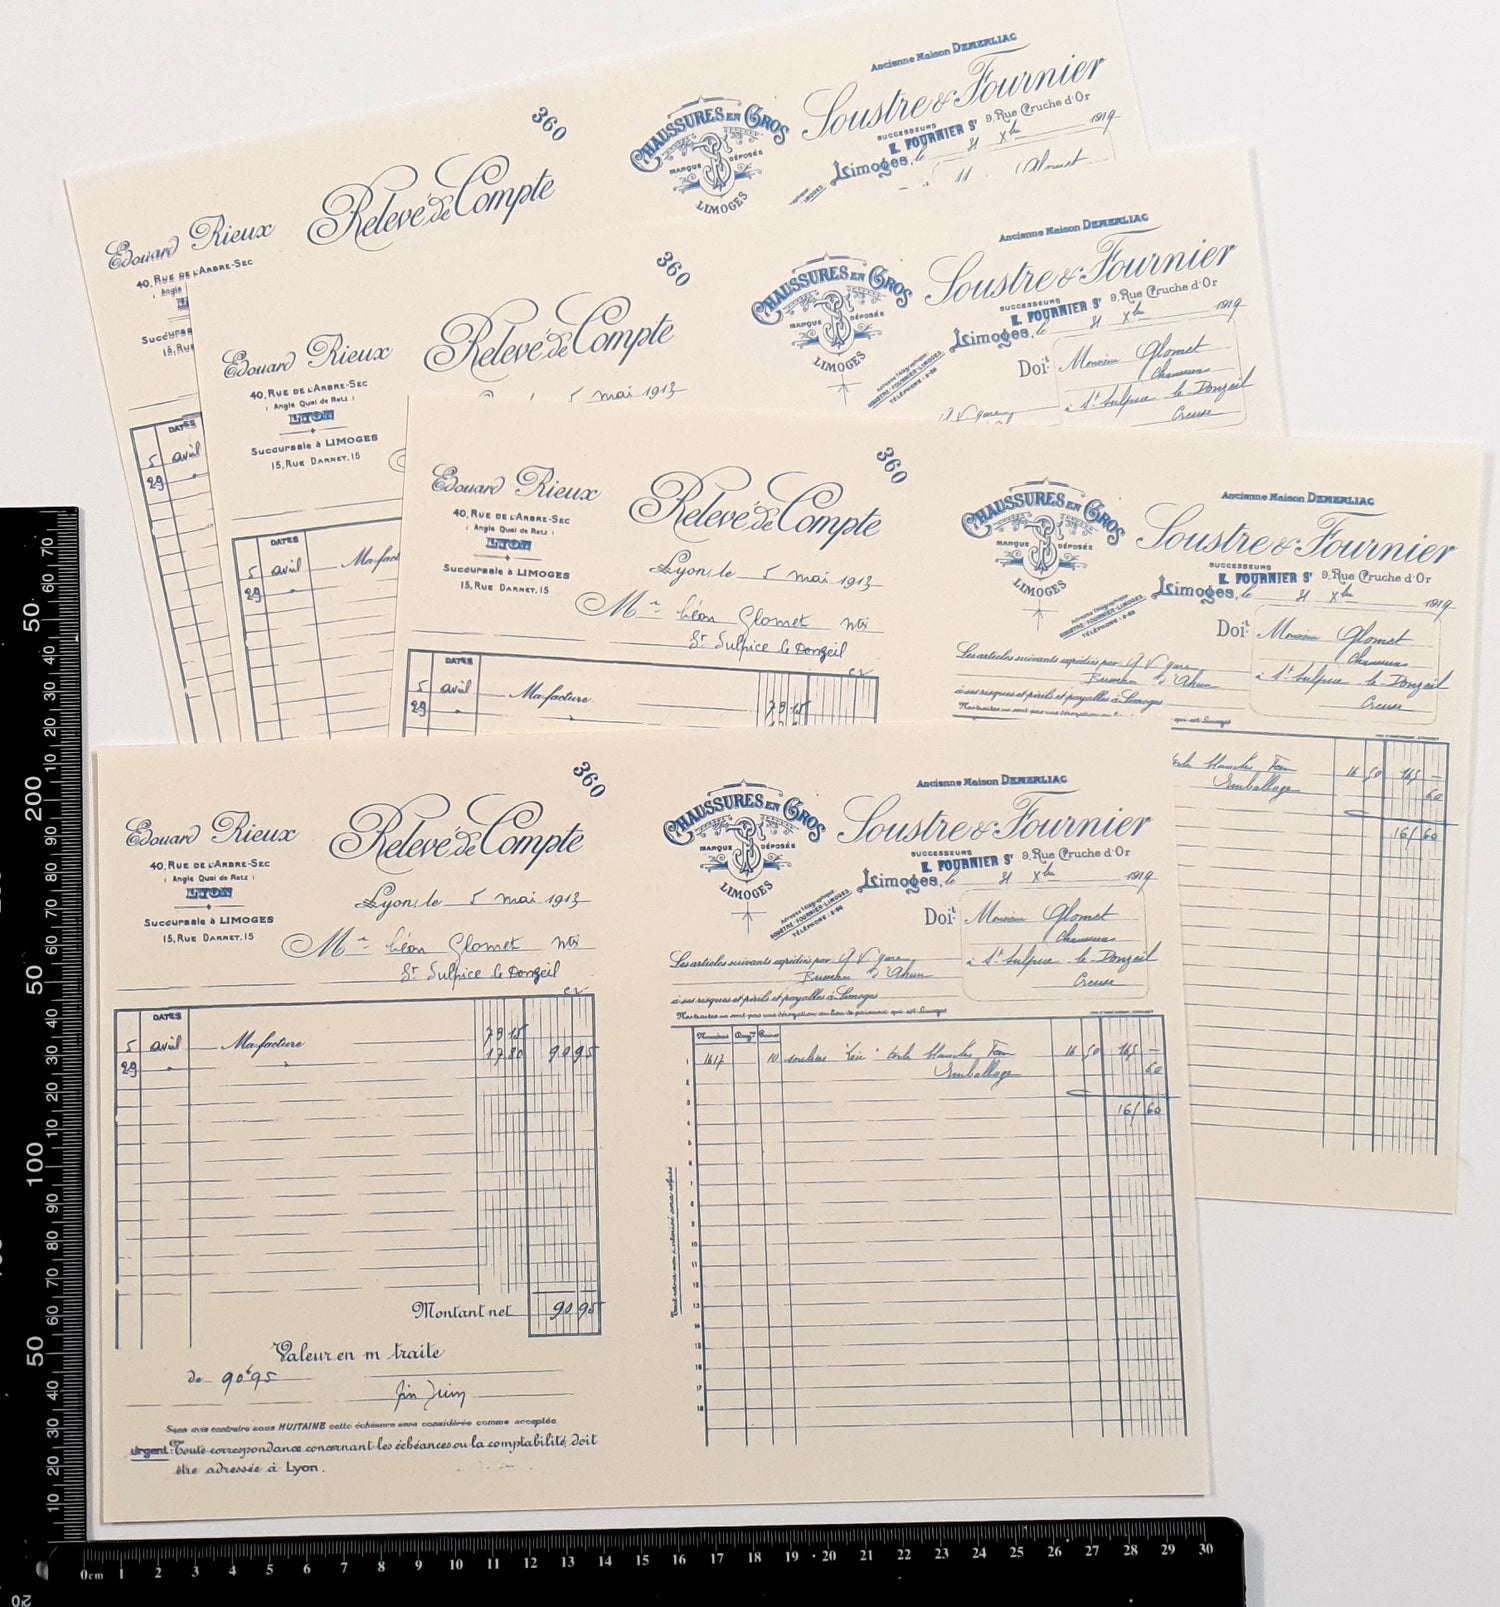 360
Edouard Rieux
Relevé de Compte
40, RUE DE L'ARBRE-SEC
Succursale à LIMOGES
DATES
5 avril
29 "
CHAUSSURES EN GROS
MARQUE DÉPOSÉE
LIMOGES
Ancienne Maison DEMERLIAC
Soustre & Fournier
SUCCESSEURS
9, Rue Cruche d'Or
E. FOURNIER Sr
Limoges, le 31 Xbre 1919
360
Edouard Rieux
Relevé de Compte
40, RUE DE L'ARBRE-SEC
( Angle Quai de Retz )
LYON
Succursale à LIMOGES
15, RUE DARNET, 15
5 mai 1913
DATES
5 avril
29 "
CHAUSSURES EN GROS
MARQUE DÉPOSÉE
LIMOGES
Adresse Télégraphique
SOUSTRE-FOURNIER-LIMOGES
Ancienne Maison DEMERLIAC
Soustre & Fournier
SUCCESSEURS
E. FOURNIER Sr 9, Rue Cruche d'Or
Limoges, le 31 Xbre 1919
Doit Monsieur Glomet
Chaussures
à St Sulpice le Donzeil
Creuse
360
Edouard Rieux
Relevé de Compte
40, RUE DE L'ARBRE-SEC
( Angle Quai de Retz )
LYON
Succursale à LIMOGES
15, RUE DARNET, 15
Lyon, le 5 mai 1913
Mr Léon Glomet
St Sulpice le Donzeil
DATES
5 avril Ma facture 73 15
29 "
CHAUSSURES EN GROS
MARQUE DÉPOSÉE
LIMOGES
Adresse Télégraphique
SOUSTRE-FOURNIER-LIMOGES
Ancienne Maison DEMERLIAC
Soustre & Fournier
SUCCESSEURS
E. FOURNIER Sr 9, Rue Cruche d'Or
Limoges, le 31 Xbre 1919
Doit Monsieur Glomet
Chaussures
à St Sulpice le Donzeil
Creuse
Les articles suivants expédiés par G V gare
Bureau d'Ahun
à ses risques et périls et payables à Limoges
toile blanche 16 50 165 —
Emballage 60
360
Edouard Rieux
Relevé de Compte
40, RUE DE L'ARBRE-SEC
( Angle Quai de Retz )
LYON
Succursale à LIMOGES
15, RUE DARNET, 15
Lyon, le 5 mai 1913
Mr Léon Glomet
St Sulpice le Donzeil
DATES
5 avril Ma facture 73 15
29 " " 17 80 90 95
Montant net 90 95
Valeur en m traite
de 90f95
fin Juin
Sans avis contraire sous HUITAINE cette échéance sera considérée comme acceptée
Urgent: Toute correspondance concernant les échéances ou la comptabilité, doit
être adressée à Lyon.
CHAUSSURES EN GROS
MARQUE DÉPOSÉE
LIMOGES
Adresse Télégraphique
SOUSTRE-FOURNIER-LIMOGES
Ancienne Maison DEMERLIAC
Soustre & Fournier
SUCCESSEURS
E. FOURNIER Sr 9, Rue Cruche d'Or
Limoges, le 31 Xbre 1919
Doit Monsieur Glomet
Chaussures
à St Sulpice le Donzeil
Creuse
Les articles suivants expédiés par G V gare
Bureau d'Ahun
à ses risques et périls et payables à Limoges
Nos traites ne sont pas une dérogation au lieu de paiement qui est Limoges
Numéros
1617 10 souliers toile blanche 16 50 165 —
Emballage 60
0cm 1 2 3 4 5 6 7 8 9 10 11 12 13 14 15 16 17 18 19 20 21 22 23 24 25 26 27 28 29 30
10 20 30 40 50 60 70 80 90 100 10 20 30 40 50 60 70 80 90 200 10 20 30 40 50 60 70